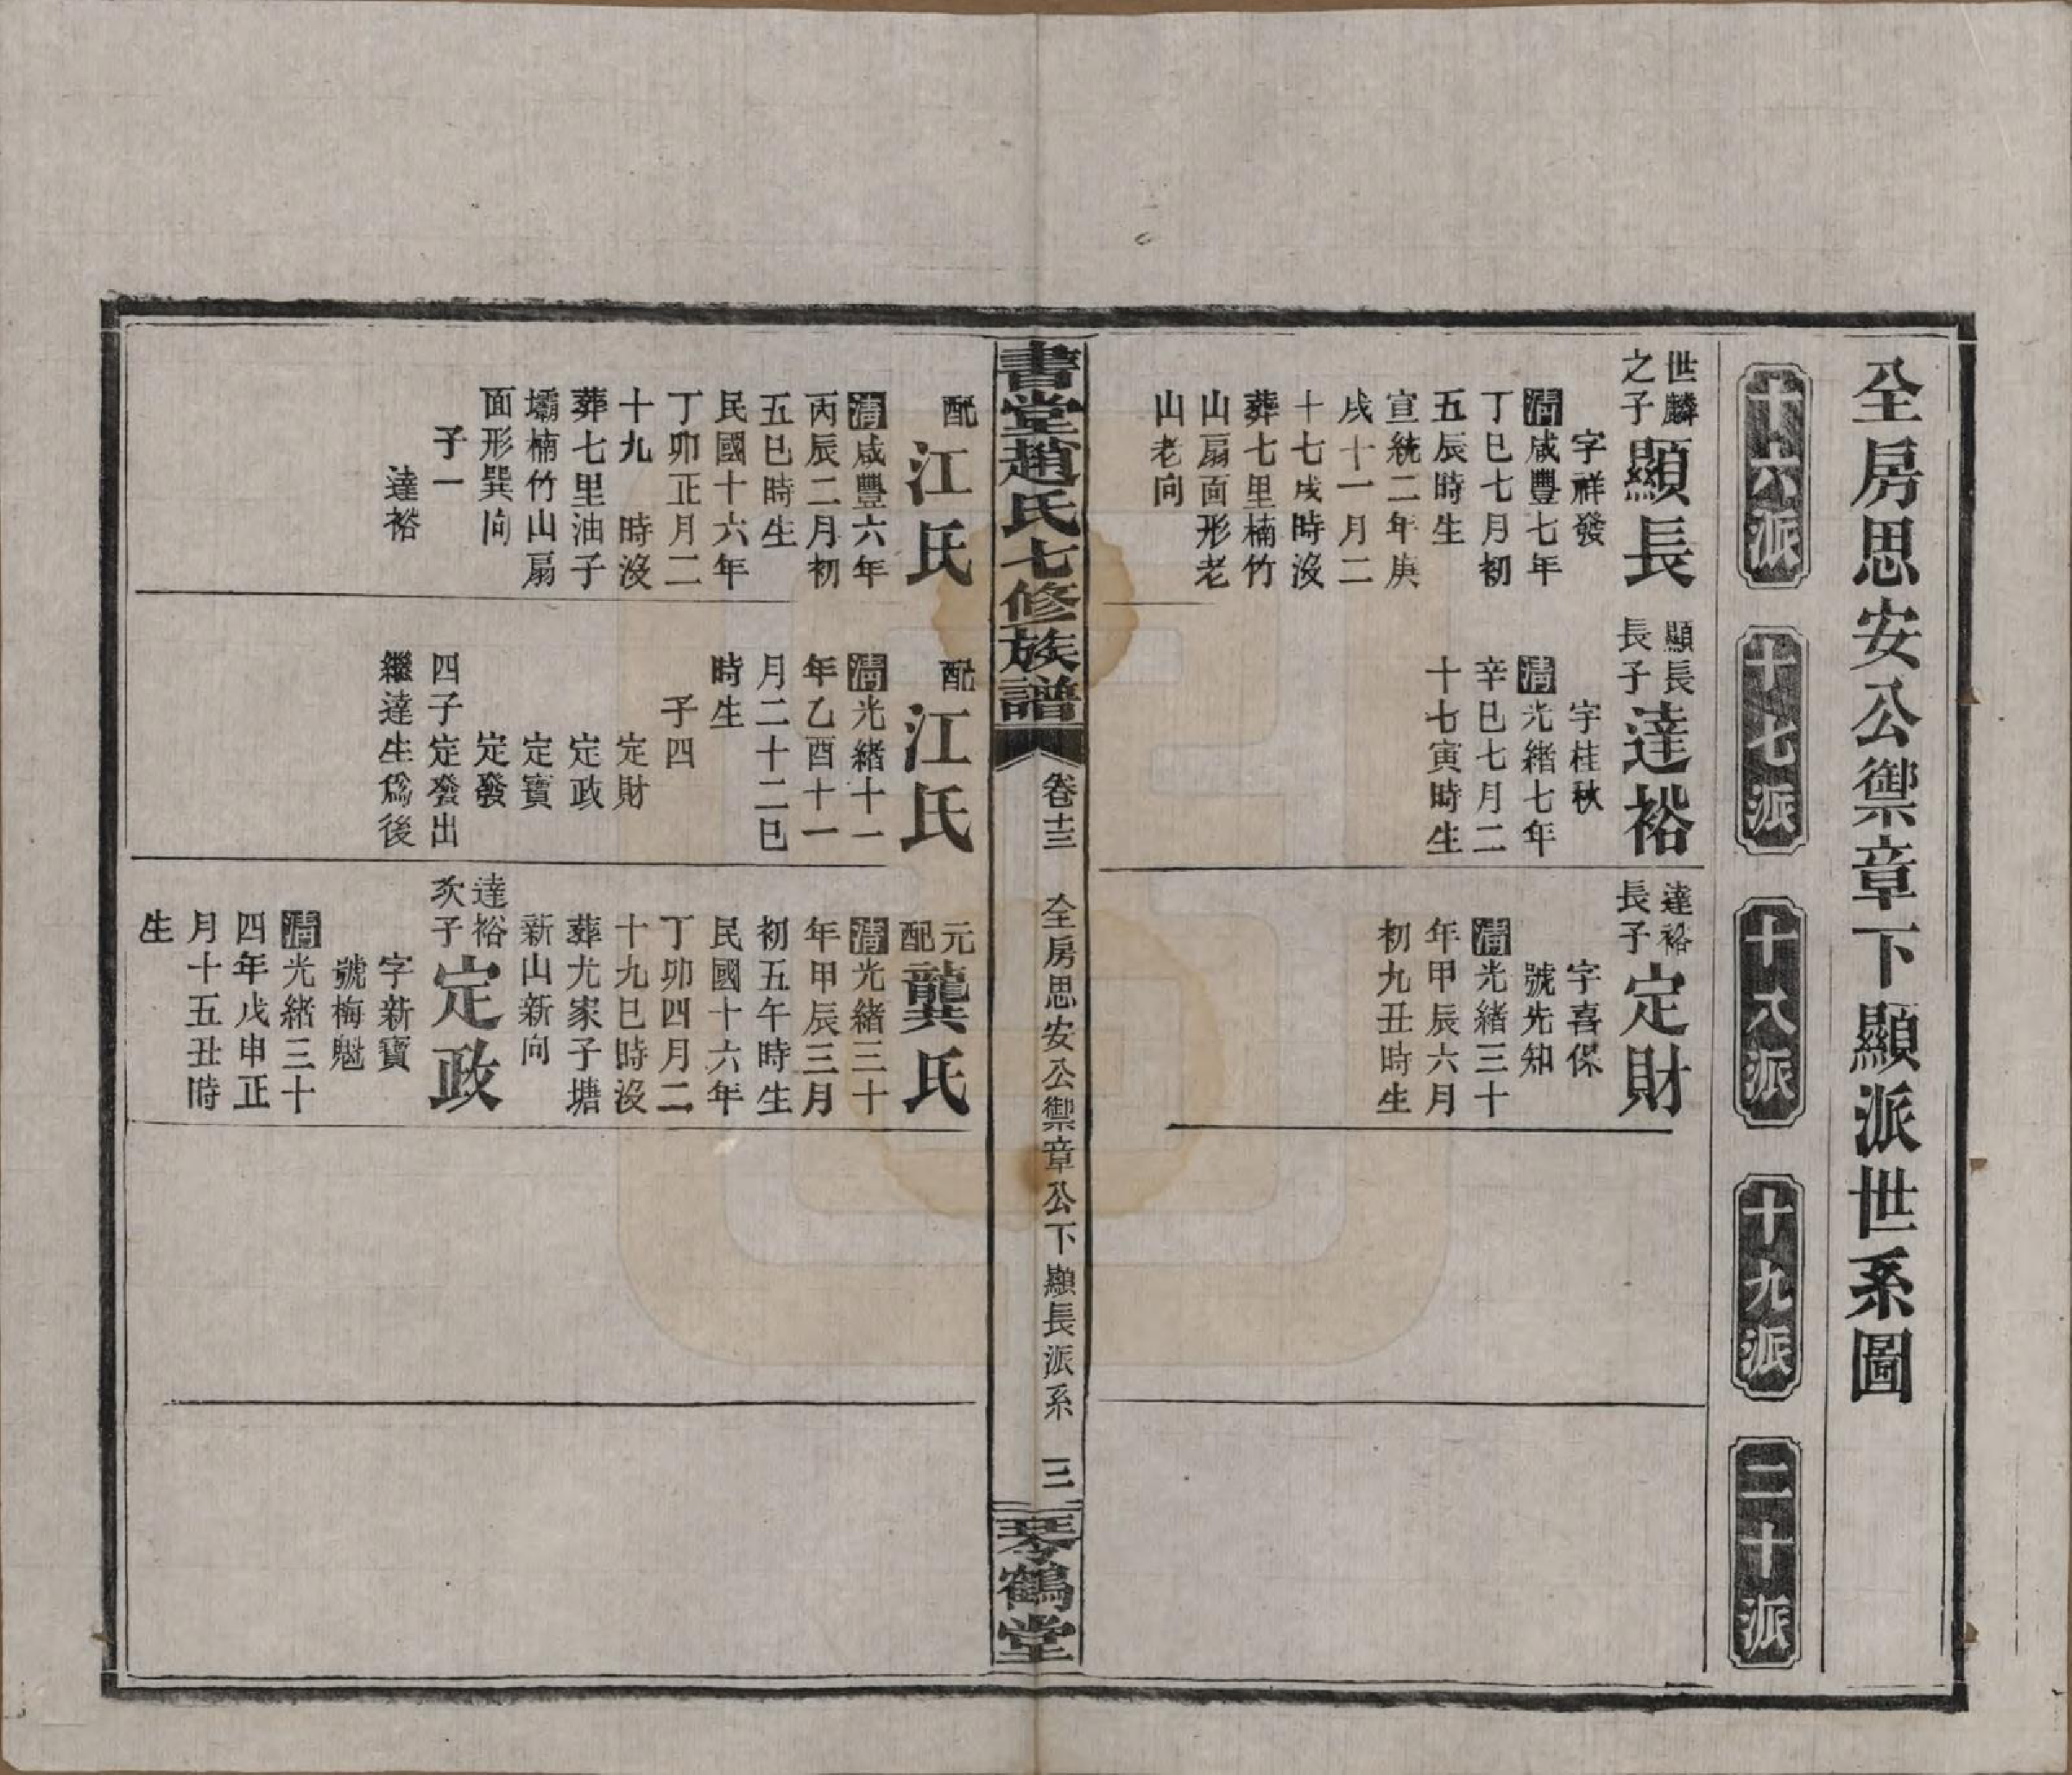 全房思安公禦章下顯派世系圖
十六派
十七派
十八派
十九派
二十派
世麟
之子
顯長
字祥發
清咸豐七年
丁巳七月初
五辰時生
宣統二年庚
戌十一月二
十七戌時沒
葬七里楠竹
山扇面形老
山老向
顯長
長子
達裕
字桂秋
清光緒七年
辛巳七月二
十七寅時生
達裕
長子
定財
字喜保
號先知
清光緒三十
年甲辰六月
初九丑時生
書堂趙氏七修族譜
卷十三
全房思安公禦章公下顯長派系
三
琴鶴堂
配
江氏
清咸豐六年
丙辰二月初
五巳時生
民國十六年
丁卯正月二
十九 時沒
葬七里油子
壩楠竹山扇
面形巽向
子一
達裕
配
江氏
清光緒十一
年乙酉十一
月二十二巳
時生
子四
定財
定政
定寶
定發
四子定發出
繼達生為後
元
配
龔氏
清光緒三十
年甲辰三月
初五午時生
民國十六年
丁卯四月二
十九巳時沒
葬尤家子塘
新山新向
達裕
次子
定政
字新寶
號梅魁
清光緒三十
四年戊申正
月十五丑時
生